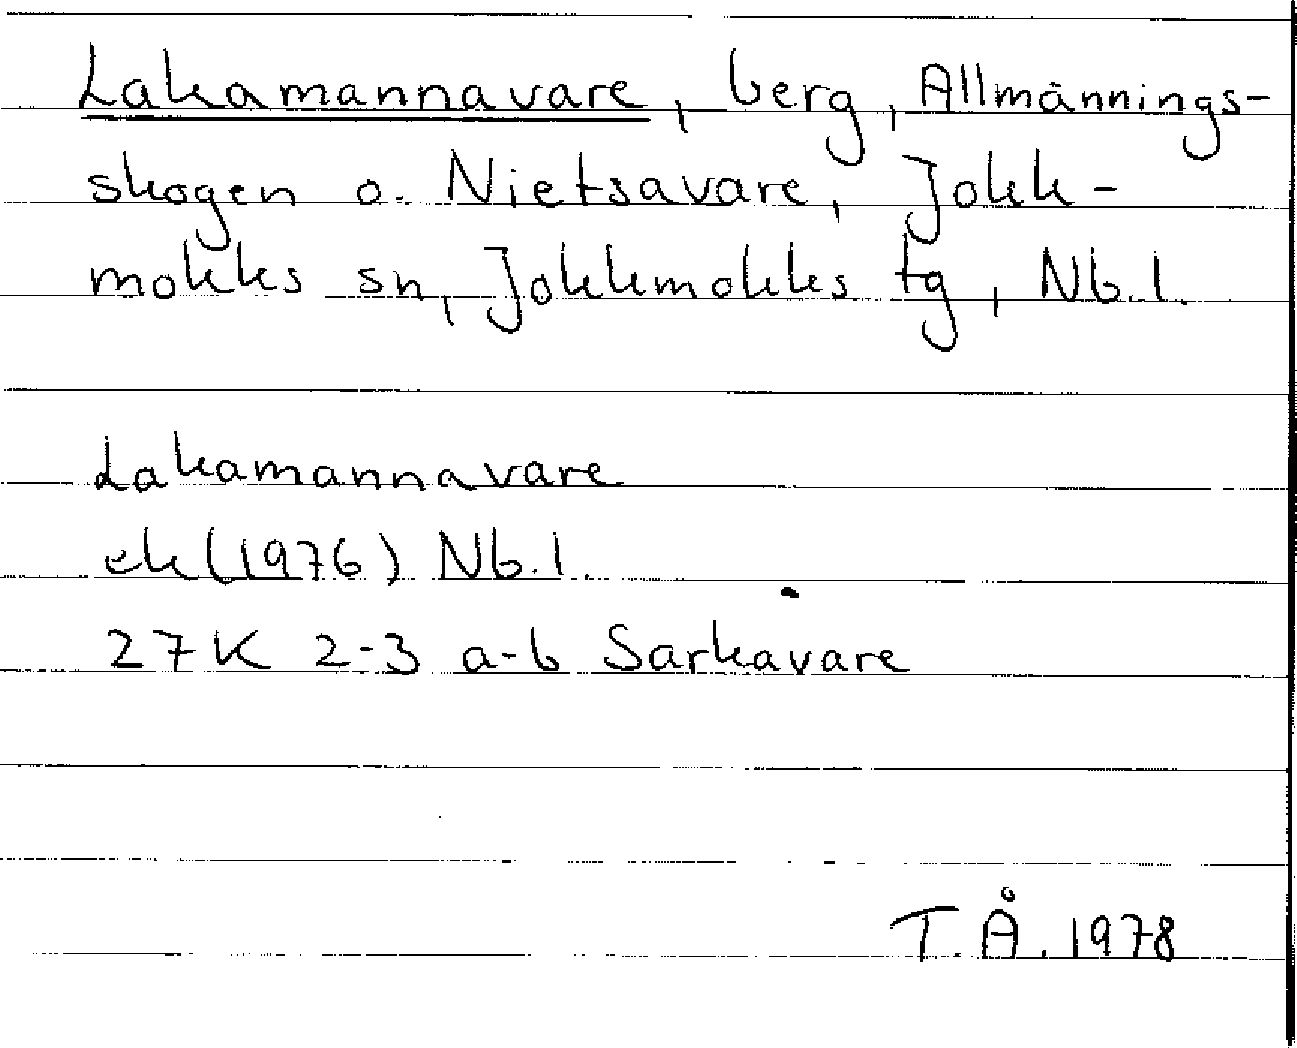 Lakamannavare, berg, Allmännings-
skogen o. Nietsavare, Jokk-
mokks sn, Jokkmokks tg, Nb.l.
Lakamannavare
ek (1976) Nb.l.
27K 2-3 a-b Sarkavare
T.Å. 1978